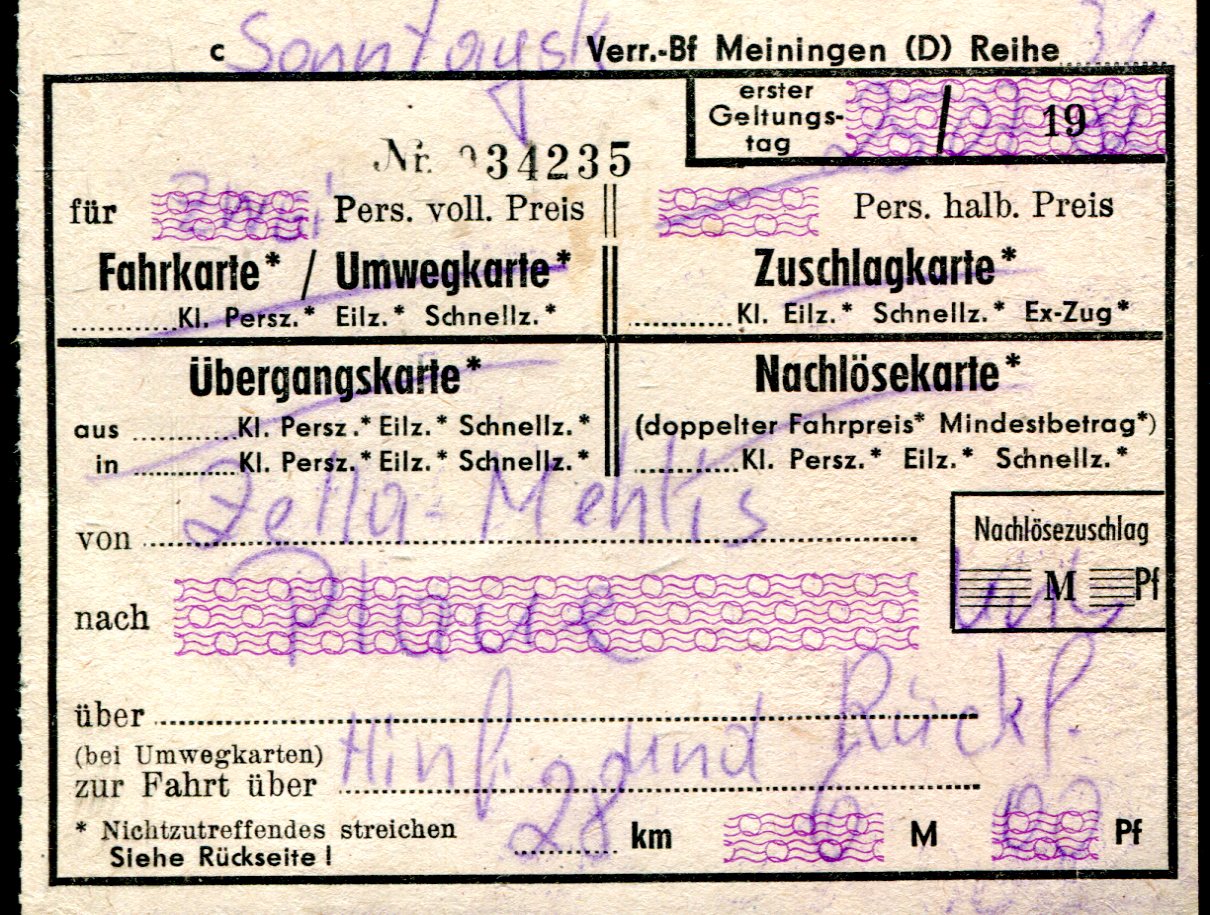 c Sonntagsk Verr.-Bf Meiningen (D) Reihe
erster
Geltungs-
tag / 19
Nr. 034235
für Zwei Pers. voll. Preis
Pers. halb. Preis
Fahrkarte* / Umwegkarte*
Kl. Persz.* Eilz.* Schnellz.*
Zuschlagkarte*
Kl. Eilz.* Schnellz.* Ex-Zug*
Übergangskarte*
aus Kl. Persz.* Eilz.* Schnellz.*
in Kl. Persz.* Eilz.* Schnellz.*
Nachlösekarte*
(doppelter Fahrpreis* Mindestbetrag*)
Kl. Persz.* Eilz.* Schnellz.*
von Zella-Mehlis
Nachlösezuschlag
M Pf
nach Plaue
über
(bei Umwegkarten)
zur Fahrt über
Hinf. und Rückf.
* Nichtzutreffendes streichen
Siehe Rückseite!
28 km 6 M Pf